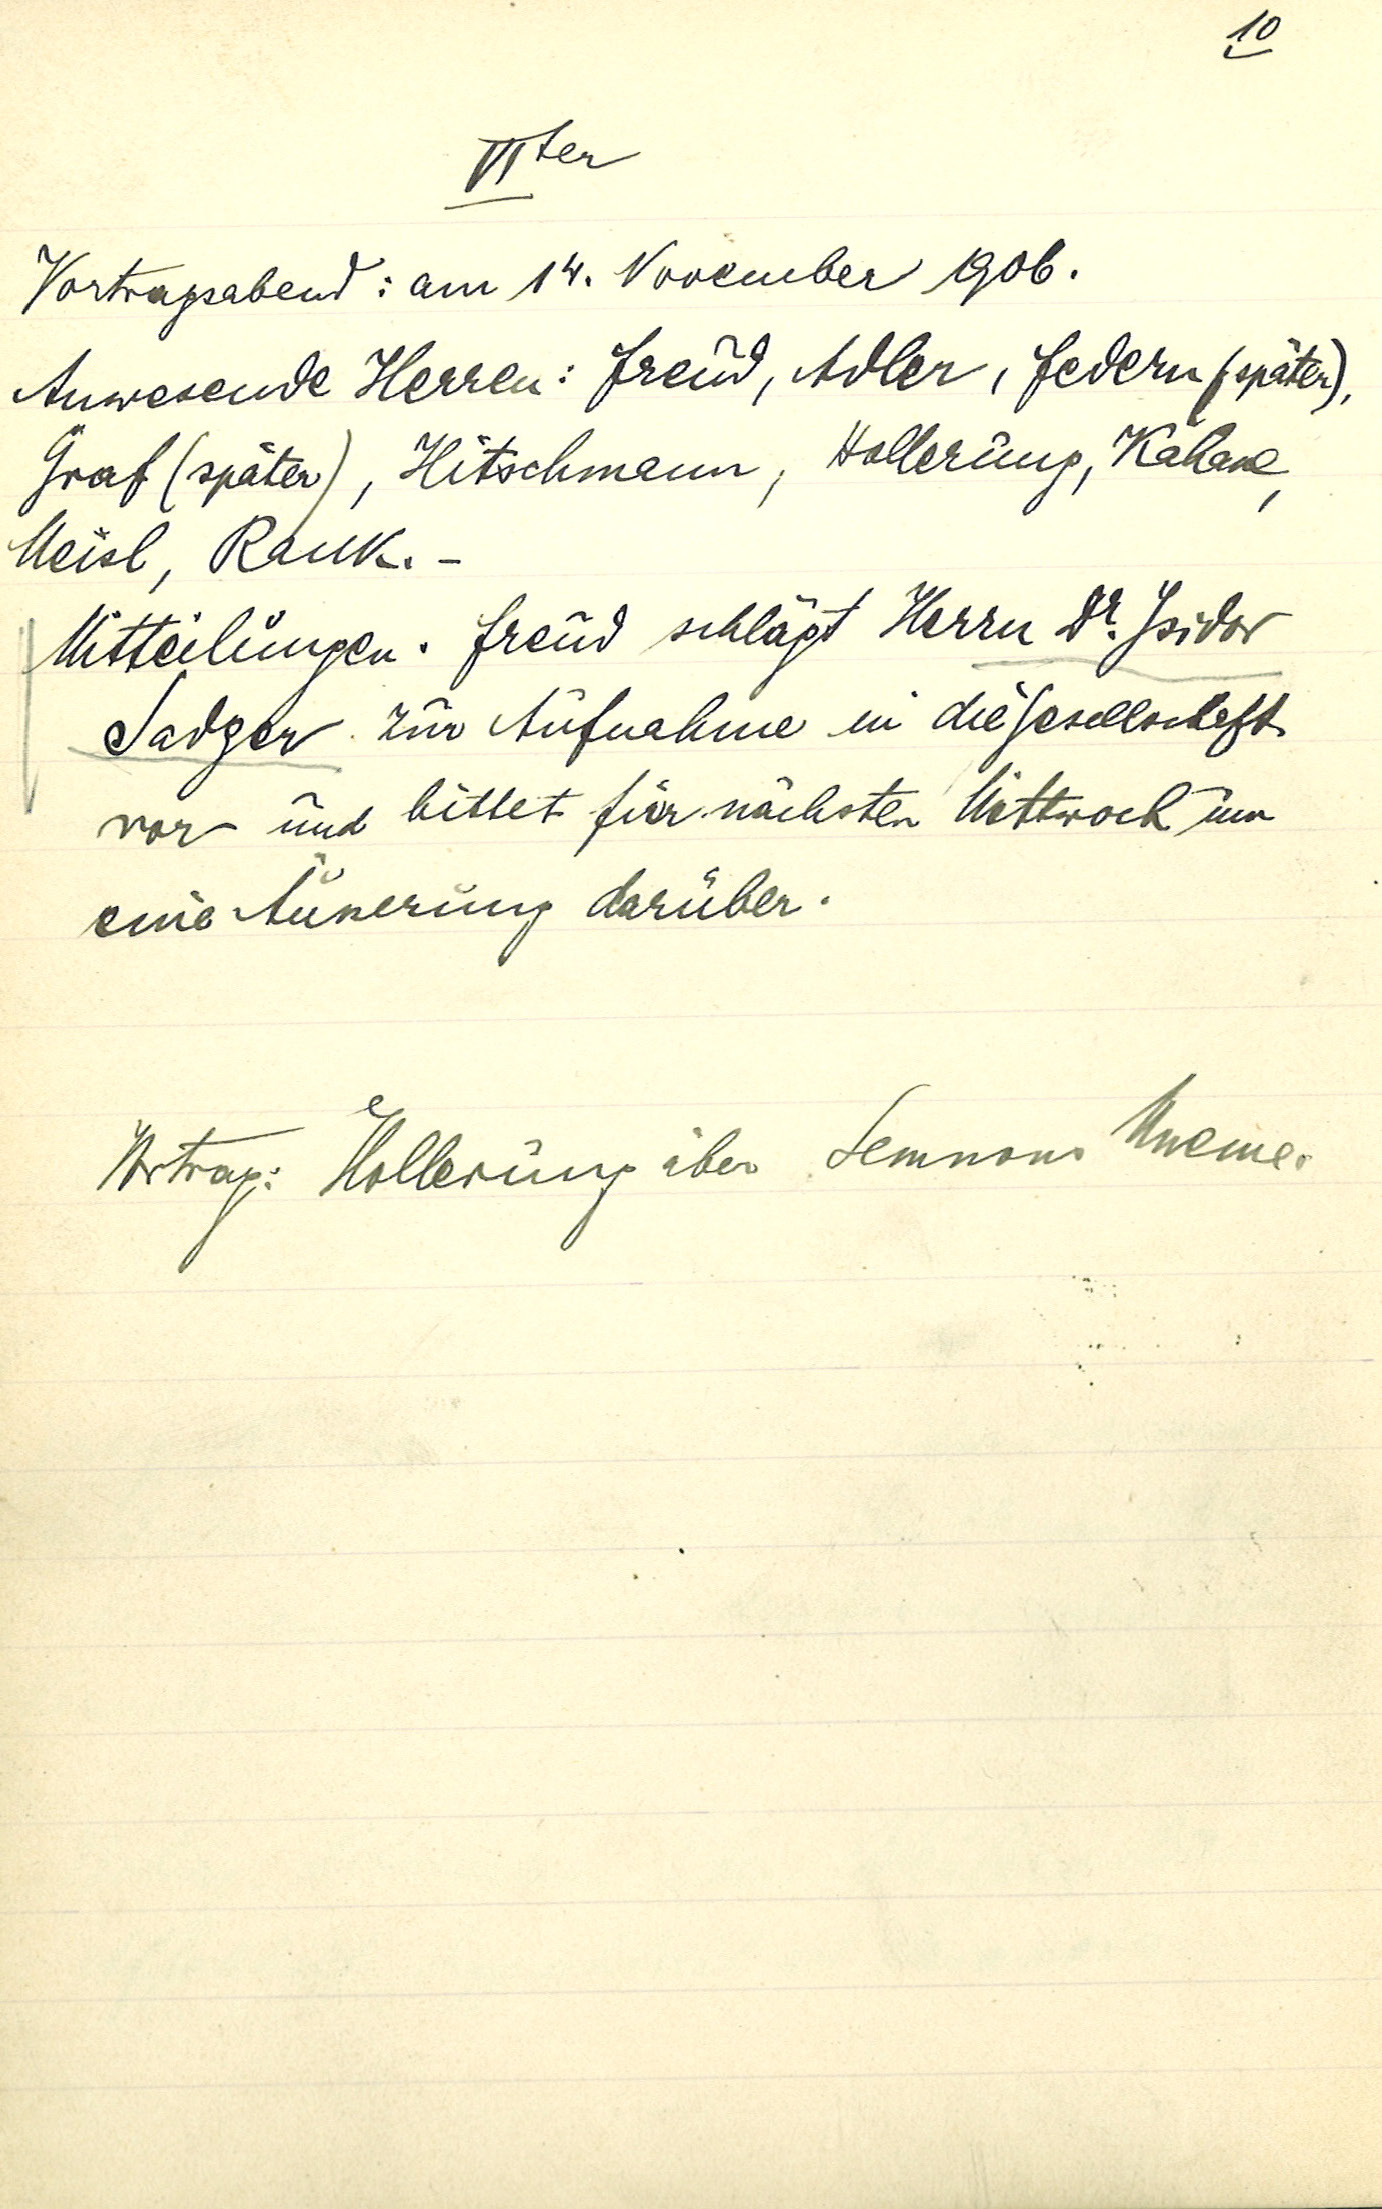 10
VIter
Vortragsabend: am 14. November 1906.
Anwesende Herren: Freud, Adler, Federn (später),
Graf (später), Hitschmann, Hollerung, Kahane,
Meisl, Rank. –
Mitteilungen. Freud schlägt Herrn Dr. Isidor
Sadger zur Aufnahme in die Gesellschaft
vor und bittet für nächsten Mittwoch um
eine Äußerung darüber.
Vortrag: Hollerung über Semnons Mneme.